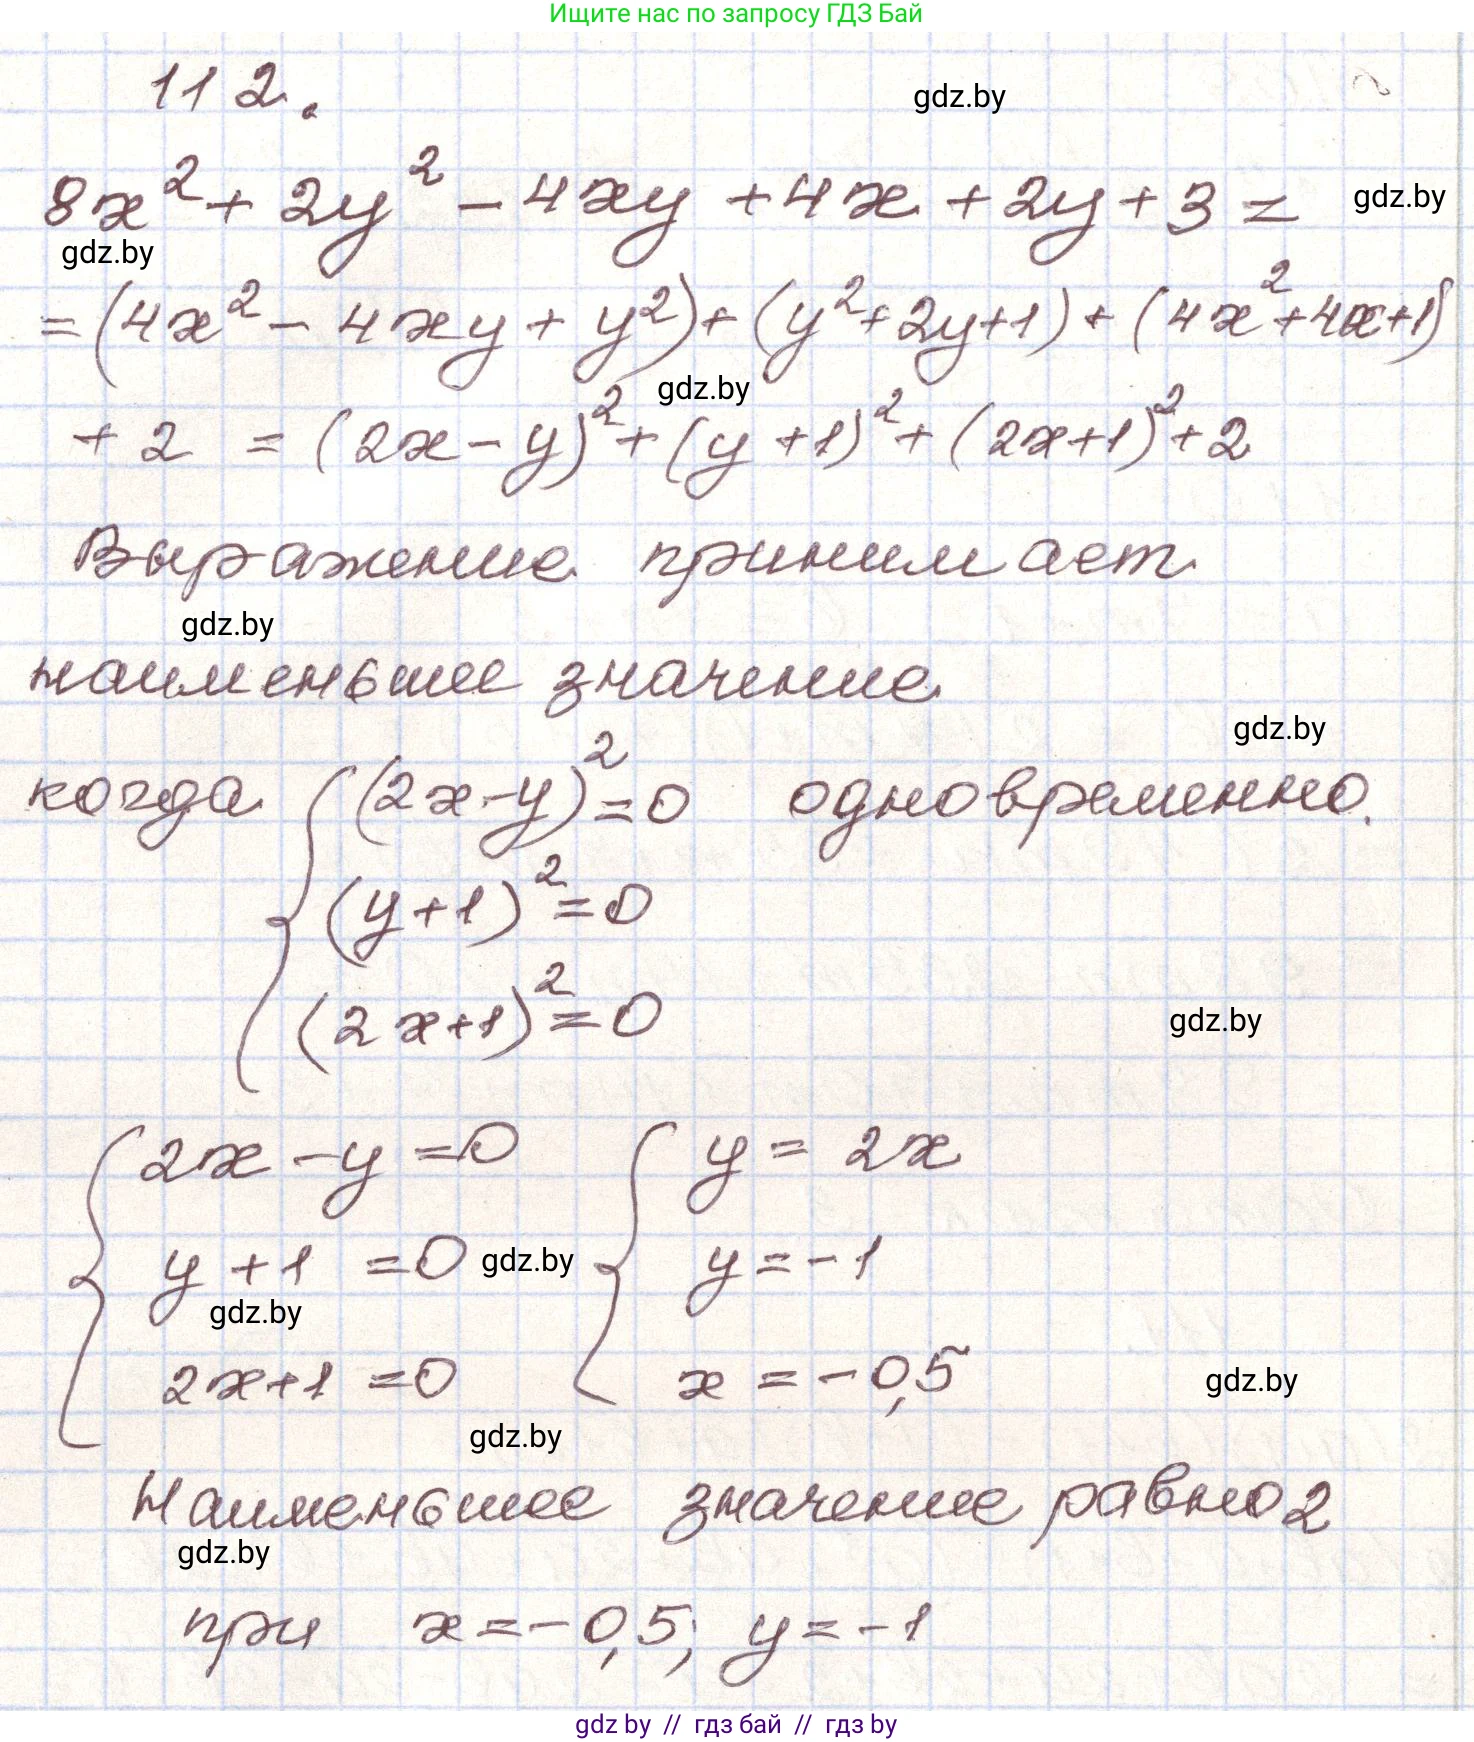 Ищите нас по запросу ГДЗ Бай
112.
gdz.by
8x² + 2y² - 4xy + 4x + 2y + 3 =
gdz.by
gdz.by
= (4x² - 4xy + y²) + (y² + 2y + 1) + (4x² + 4x + 1)
gdz.by
+ 2 = (2x - y)² + (y + 1)² + (2x + 1)² + 2
Выражение принимает
gdz.by
наименьшее значение
gdz.by
когда { (2x - y)² = 0 одновременно.
(y + 1)² = 0
(2x + 1)² = 0
gdz.by
{ 2x - y = 0 { y = 2x
y + 1 = 0 gdz.by y = -1
gdz.by
2x + 1 = 0 x = -0,5
gdz.by
gdz.by
Наименьшее значение равно 2
gdz.by
при x = -0,5; y = -1
gdz by // гдз бай // гдз by